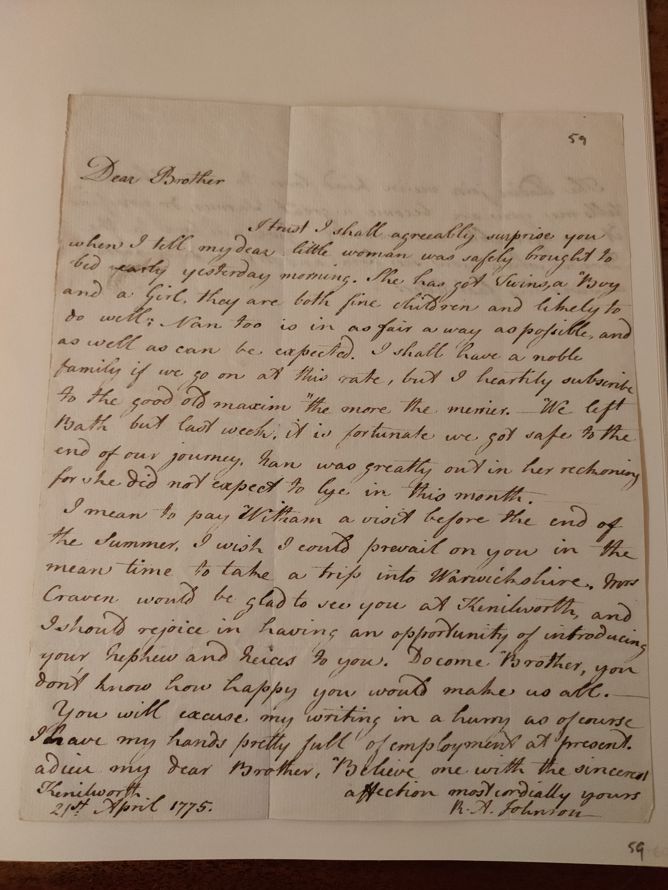 59
Dear Brother
I trust I shall agreeably surprise you
when I tell my dear little woman was safely brought to
bed early yesterday morning. She has got Twins, a Boy
and a Girl. they are both fine children and likely to
do well; Nan too is in as fair a way as possible, and
as well as can be expected. I shall have a noble
family if we go on at this rate, but I heartily subscribe
to the good old maxim "the more the merrier. — We left
Bath but last week. it is fortunate we got safe to the
end of our journey. Nan was greatly out in her reckoning
for she did not expect to lye in this month.
I mean to pay Witham a visit before the end of
the Summer. I wish I could prevail on you in the
mean time to take a trip into Warwickshire. Mrs
Craven would be glad to see you at Kenilworth, and
I should rejoice in having an opportunity of introducing
your Nephew and Neices to you. Do come Brother, you
don't know how happy you would make us all. —
You will excuse my writing in a hurry as of course
I have my hands pretty full of employment at present.
adieu my dear Brother, Believe me with the sincerest
affection most cordially yours
Kenilworth R. A. Johnson
21st April 1775.
59